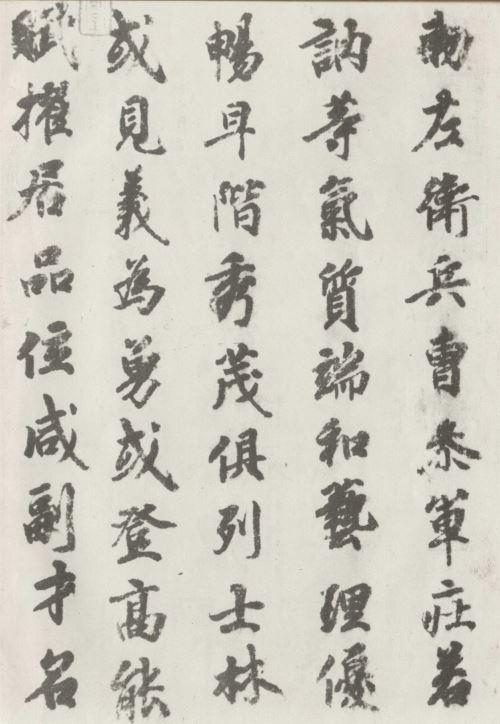 勅左衛兵曹叅軍庄若
訥等氣質端和藝理優
暢早階秀茂俱列士林
或見義為勇或登高能
賦擢居品位咸副才名